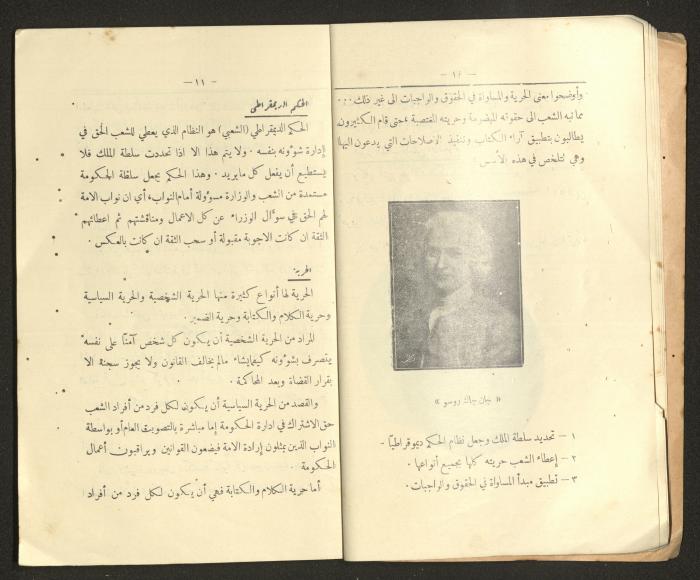 — ١٠ —
وأوضحوا معنى الحرية والمساواة في الحقوق والواجبات الى غير ذلك ...
مما نبه الشعب الى حقوقه المهضومة وحريته المغتصبة ، حتى قام الكثيرون
يطالبون بتطبيق آراء الكتاب وتنفيذ الاصلاحات التي يدعون اليها
وهي تتلخص في هذه الأسس
« جان جاك روسو »
١ — تحديد سلطة الملك وجعل نظام الحكم ديموقراطياً .
٢ — إعطاء الشعب حريته كلها بجميع أنواعها .
٣ — تطبيق مبدأ المساواة في الحقوق والواجبات .
— ١١ —
الحكم الديمقراطي
الحكم الديمقراطي (الشعبي) هو النظام الذي يعطي للشعب الحق في
إدارة شؤونه بنفسه . ولا يتم هذا الا اذا تحددت سلطة الملك فلا
يستطيع أن يفعل كل مايريد . وهذا الحكم يجعل سلطة الحكومة
مستمدة من الشعب والوزارة مسؤولة أمام النواب، أي ان نواب الامة
لهم الحق في سؤال الوزراء عن كل الاعمال ومناقشتهم ثم اعطائهم
الثقة ان كانت الاجوبة مقبولة أو سحب الثقة ان كانت بالعكس .
الحرية
الحرية لها أنواع كثيرة منها الحرية الشخصية والحرية السياسية
وحرية الكلام والكتابة وحرية الضمير .
المراد من الحرية الشخصية أن يكون كل شخص آمناً على نفسه
يتصرف بشؤونه كيفما يشاء مالم يخالف القانون ولا يجوز سجنه الا
بقرار القضاة وبعد المحاكمة .
والقصد من الحرية السياسية أن يكون لكل فرد من أفراد الشعب
حق الاشتراك في ادارة الحكومة إما مباشرة بالتصويت العام أو بواسطة
النواب الذين يمثلون إرادة الامة فيضعون القوانين ويراقبون أعمال
الحكومة .
أما حرية الكلام والكتابة فهي أن يكون لكل فرد من أفراد